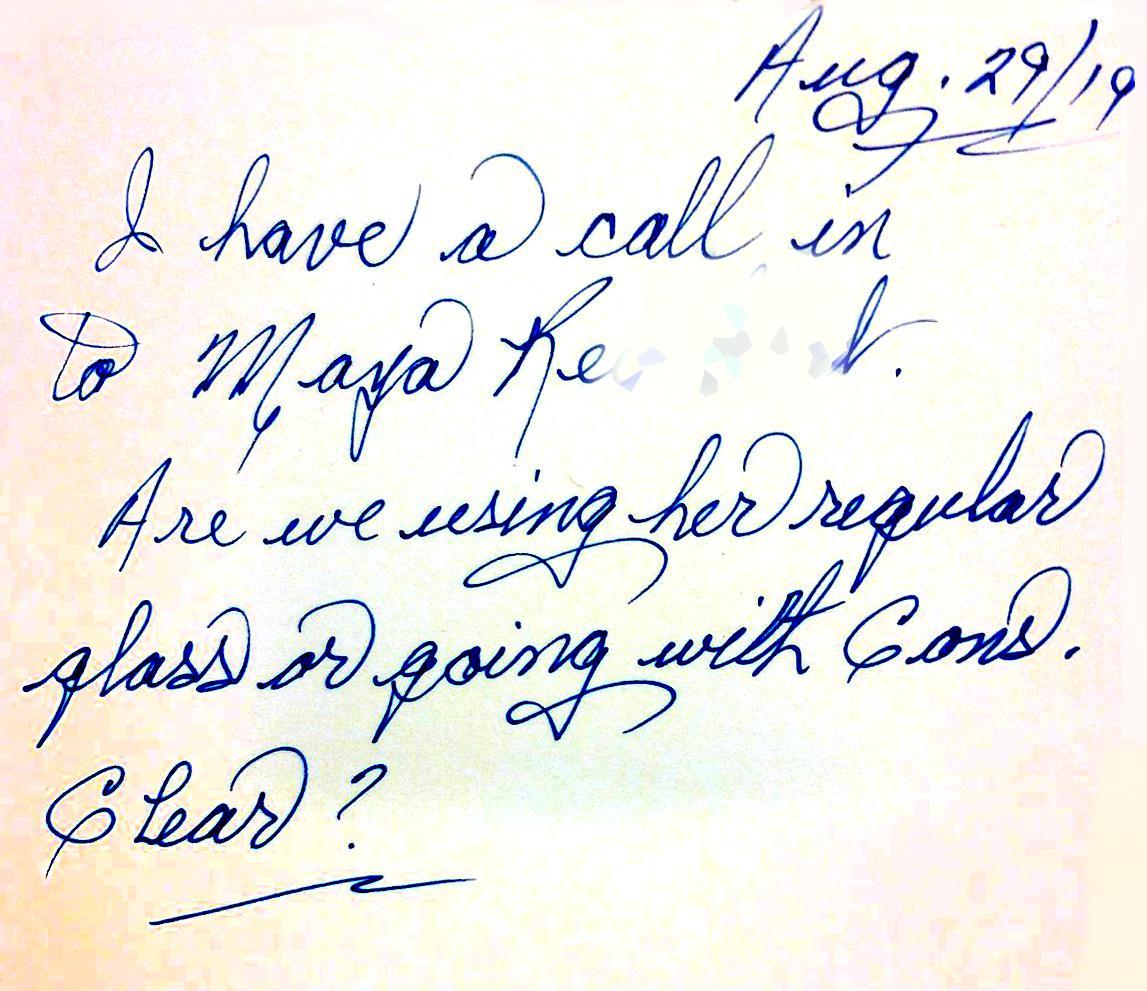 Aug. 29/19
I have a call in
to Maya
Are we using her regular
glass or going with Cons.
Clear?